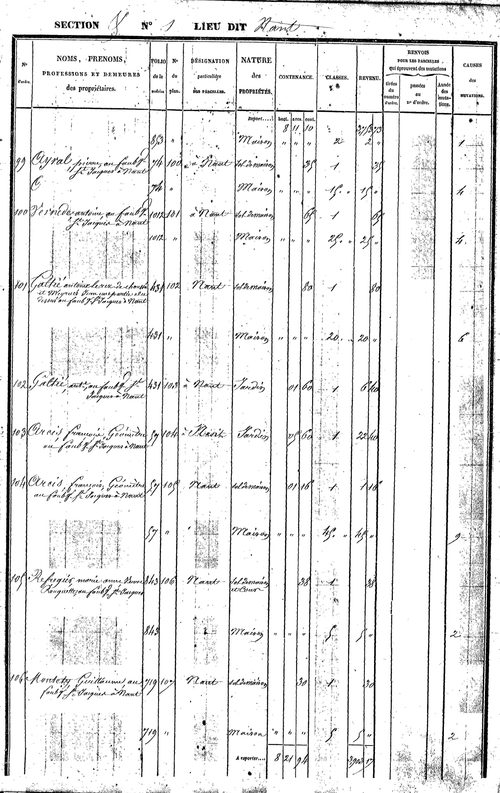 SECTION Y N° 1 LIEU DIT Nant
N° d'ordre.
NOMS, PRENOMS,
PROFESSIONS ET DEMEURES
des propriétaires.
FOLIO de la matrice
N° du plan.
DÉSIGNATION
particulière
DES PARCELLES.
NATURE
des
PROPRIÉTÉS.
CONTENANCE.
CLASSES.
REVENU.
RENVOIS
POUR LES PARCELLES
qui éprouvent des mutations
tirées du numéro d'ordre.
passées au n° d'ordre.
Année des mutations.
CAUSES
des
MUTATIONS.
hect. ares cent.
Report.... 8 11 10
853 " Maison " " " 2 2 " 1
99 Ayral 74 100 à Nant sol de maison 35 1 35
St Jacques à Nant
74 " Maison " " " 15 " 15 " 4
100 antoine au faubg 1012 101 à Nant sol de maison 65 1 65
St Jacques à Nant
1012 " Maison " " " 25 " 25 " 4
101 Galtié 431 102 Nant sol de maison 80 1 80
au faubg St Jacques à Nant
431 " Maison " " " 20 " 20 " 6
102 Galtié, ant. au faubg St 431 103 à Nant Jardin 01 60 1 6 40
Jacques à Nant
103 Arcis françois, Géomètre 57 104 à Nant Jardin 05 60 1 22 40
au faubg St Jacques à Nant
104 Arcis, françois, Géomètre 57 105 Nant sol de maison 01 16 1 1 16
au faubg St Jacques à Nant
57 " Maison " " " 45 " 45 " 9
105 Refregier marie anne Veuve 843 106 Nant sol de maison 38 1 38
au faubg St Jacques et Cour
843 Maison " " " 5 5 " 2
106 Guillaume au 719 107 Nant sol de maison 30 1 30
faubg St Jacques à Nant
719 " Maison " " " 5 5 " 2
A reporter.... 8 21 94